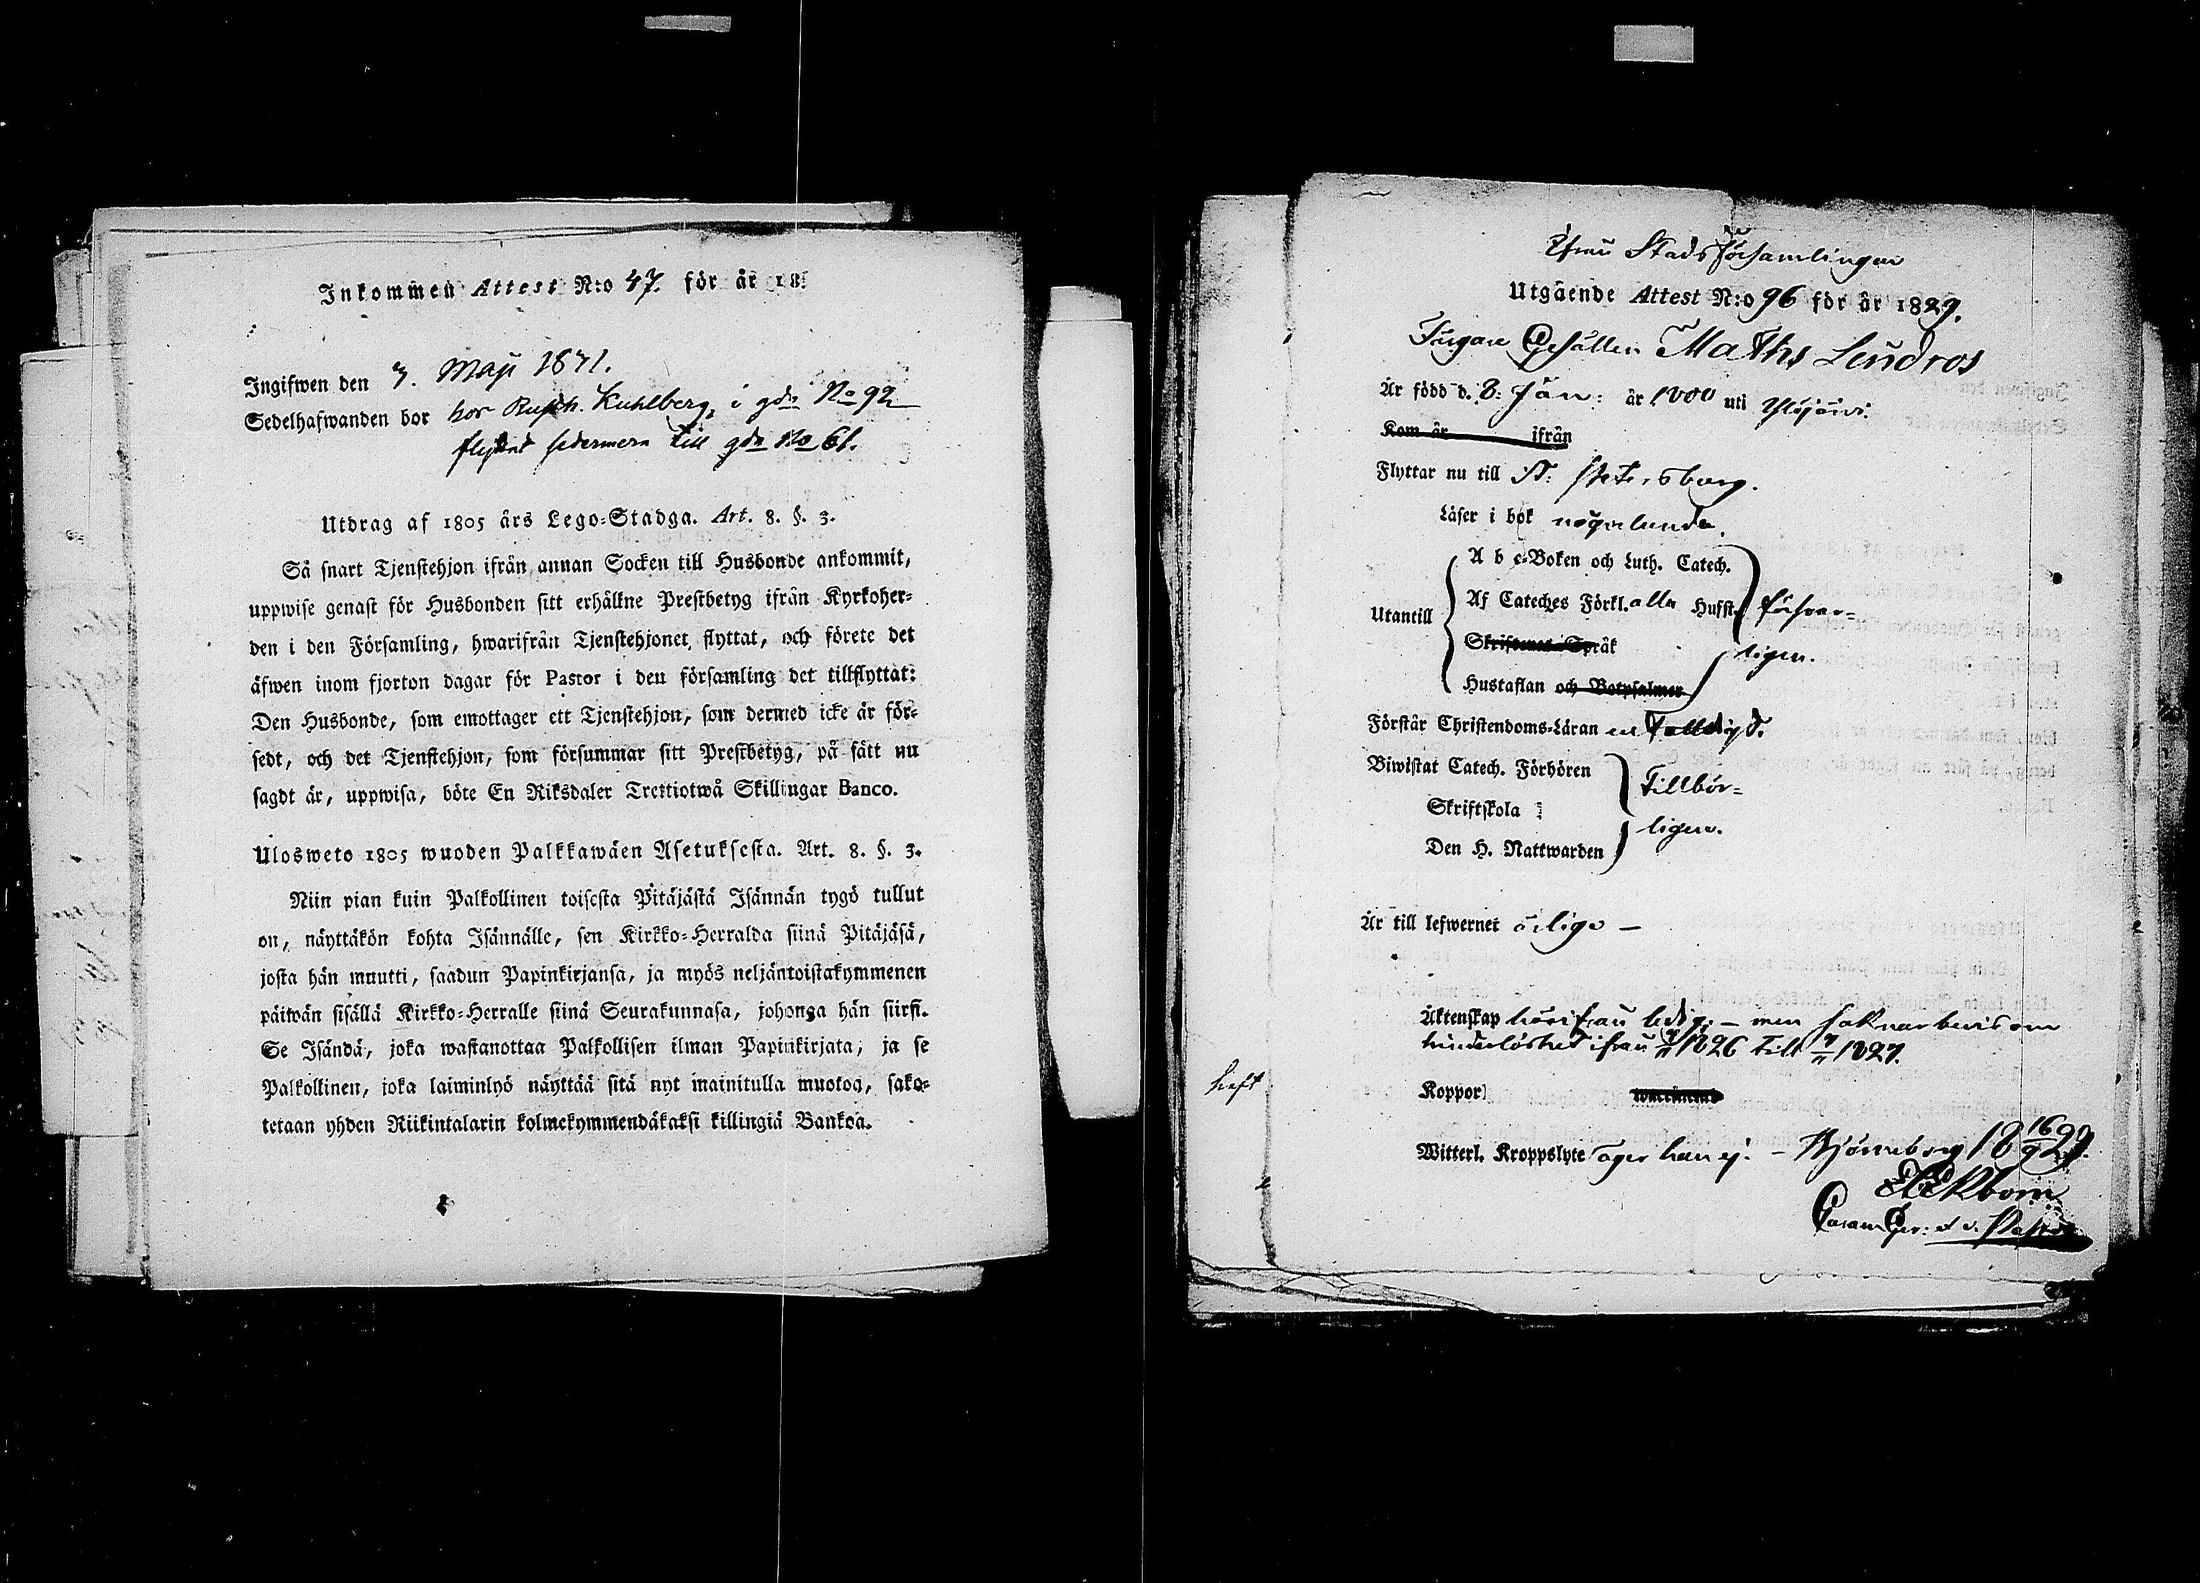 Inkommen Attest N:o 47. för år 18
Ingifwen den 7. Maji 1831.
Sedelhafwanden bor hos Rusth. Kuhlberg, i gdn No 92
flyttat sedermera till gdn No 61.
Utdrag af 1805 års Lego-Stadga. Art. 8. §. 3.
Så snart Tjenstehjon ifrån annan Socken till Husbonde ankommit,
uppwise genast för Husbonden sitt erhållne Prestbetyg ifrån Kyrkoher-
den i den Församling, hwarifrån Tjenstehjonet flyttat, och förete det
äfwen inom fjorton dagar för Pastor i den församling det tillflyttat:
Den Husbonde, som emottager ett Tjenstehjon, som dermed icke är för-
sedt, och det Tjenstehjon, som försummar sitt Prestbetyg, på sätt nu
sagdt är, uppwisa, böte En Riksdaler Trettiotwå Skillingar Banco.
Ulosweto 1805 wuoden Palkkawäen Asetuksesta. Art. 8. §. 3.
Niin pian kuin Palkollinen toisesta Pitäjästä Isännän tygö tullut
on, näyttäkön kohta Isännälle, sen Kirkko-Herralda siinä Pitäjäsä,
josta hän muutti, saadun Papinkirjansa, ja myös neljäntoistakymmenen
päiwän sisällä Kirkko-Herralle siinä Seurakunnasa, johonga hän siirsi.
Se Isändä, joka wastanottaa Palkollisen ilman Papinkirjata, ja se
Palkollinen, joka laiminlyö näyttää sitä nyt mainitulla muotoa, sako-
tetaan yhden Riikintalarin kolmekymmendäkaksi killingiä Bankoa.
Ifrån Stads församlingen
Utgående Attest N:o 96 för år 1829.
Gesällen Maths Lendros
Är född d. 8: Jan: år 1800 uti Ylöjärvi.
Kom år ifrån
Flyttar nu till St: Petersburg.
Läser i bok någorlunda.
A b c-Boken och Luth. Catech.
Utantill Af Cateches Förkl. alla Hufst. försvar-
Skriftenes Språk
ligen.
Hustaflan och Botpsalmer
Förstår Christendoms-Läran enfalldigt.
Biwistat Catech. Förhören
Tillbör-
Skriftskola
ligen.
Den H. Nattwarden
Är till lefwernet ärlige –
Äktenskap härifrån ledig; – men saknar bevis om
hinderlöshet ifrån 1826 till 1827.
haft
Koppor
Witterl. Kroppslyte äger han ej. – Björneborg 18 16/9 29.
Ekbom
v. Pastor